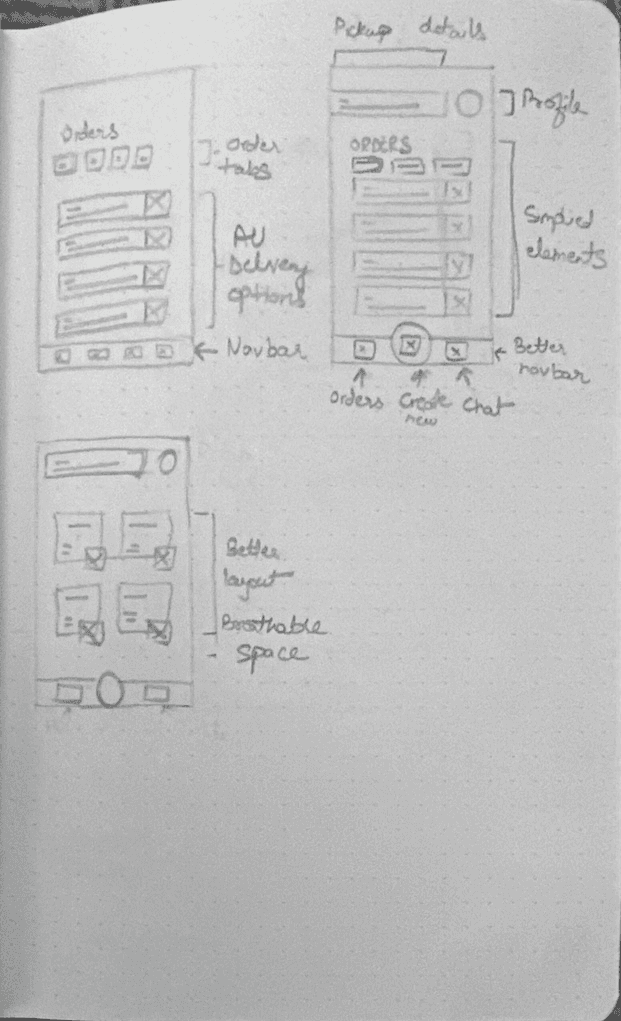 Orders
order
tabs
All
Delivery
options
Navbar
Pickup details
Profile
ORDERS
Simplied
elements
Better
navbar
orders
create
new
chat
Better
layout
Breathable
space